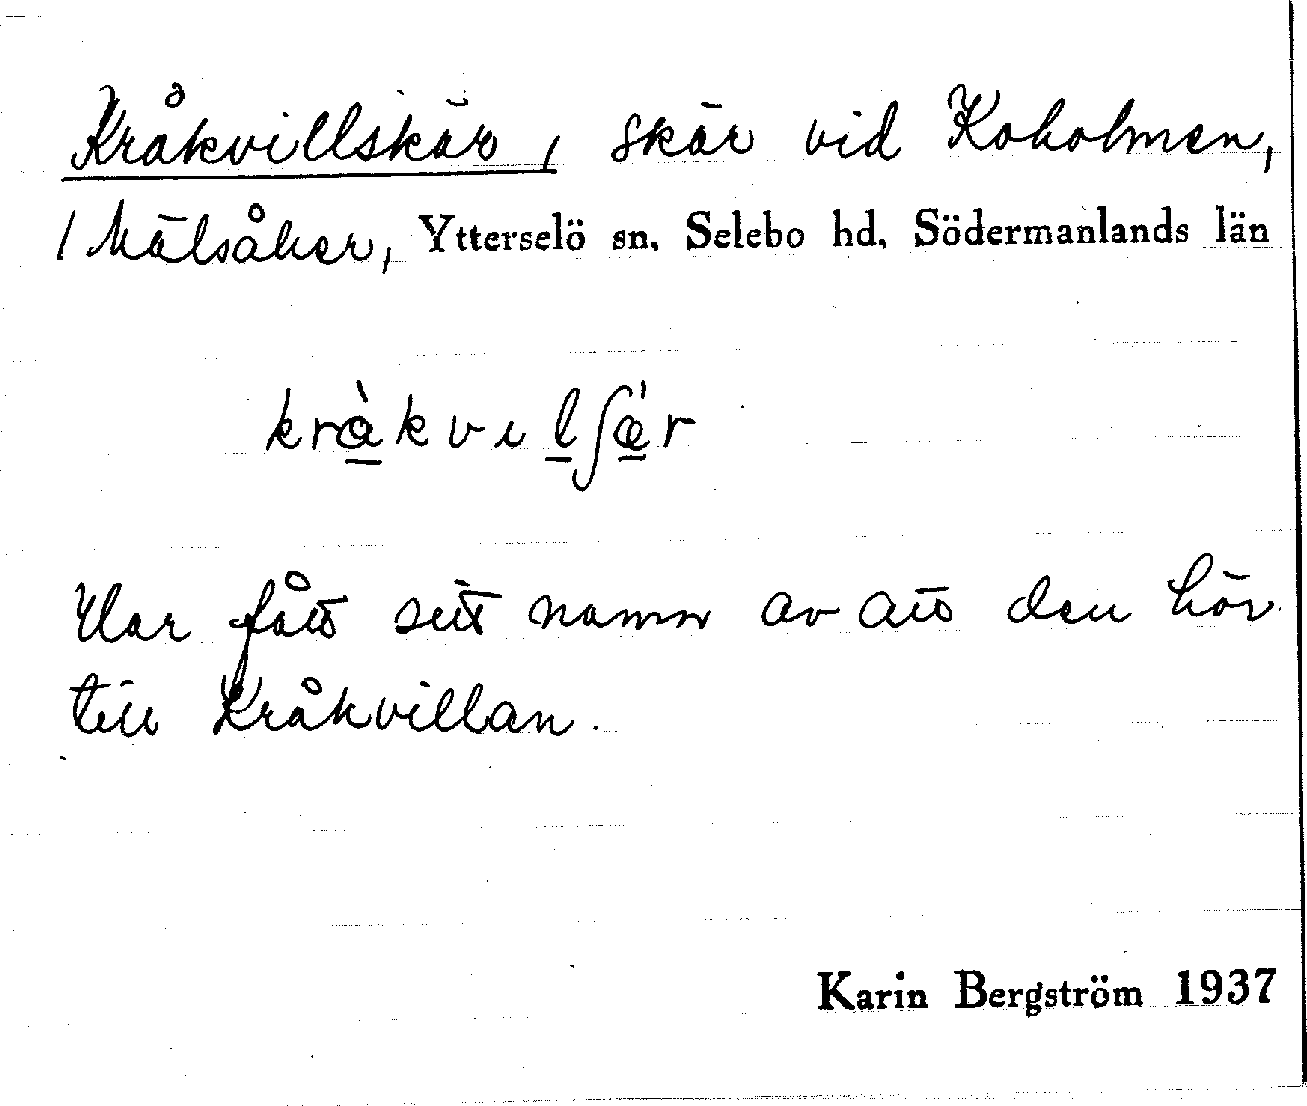 Kråkvillskär, skär vid Koholmen,
/ Mälsåker, Ytterselö sn. Selebo hd. Södermanlands län
krà̱kviḻʃǽ̱r
Har fått sitt namn av att den hör
till Kråkvillan.
Karin Bergström 1937